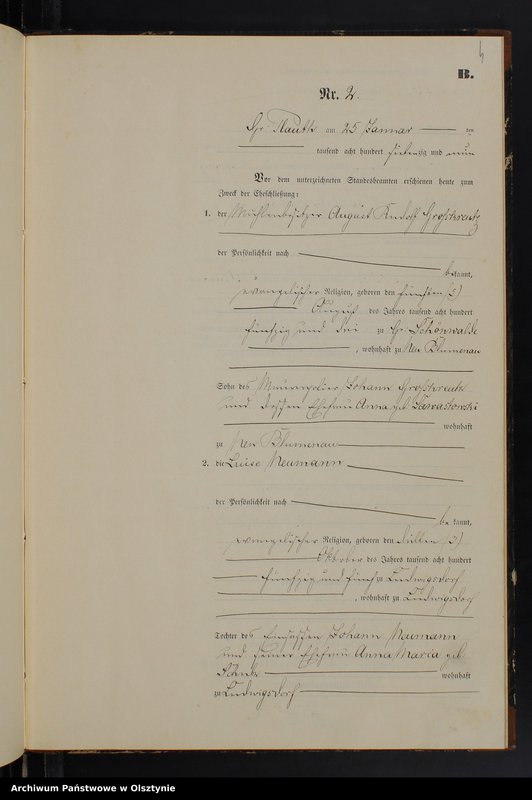 B.
Nr. 2.
Gr. Plauth am 25 Januar ten
tausend acht hundert siebenzig und neun
Vor dem unterzeichneten Standesbeamten erschienen heute zum
Zweck der Eheschließung:
1. der Mühlenbesitzer August Rudolf Großkreutz
der Persönlichkeit nach
bekannt,
evangelischer Religion, geboren den fünften (5)
August des Jahres tausend acht hundert
fünfzig und drei zu Gr. Schönwalde
, wohnhaft zu Neu Blumenau
Sohn des Maurerpolier Johann Großkreutz
und dessen Ehefrau Anna geb.
wohnhaft
zu Neu Blumenau
2. die Luise Neumann
der Persönlichkeit nach
be kannt,
evangelischer Religion, geboren den dritten (3)
Oktober des Jahres tausend acht hundert
fünfzig und fünf zu Ludwigsdorf
, wohnhaft zu Ludwigsdorf
Tochter des Einsassen Johann Neumann
und seiner Ehefrau Anna Maria geb.
wohnhaft
zu Ludwigsdorf
Archiwum Państwowe w Olsztynie